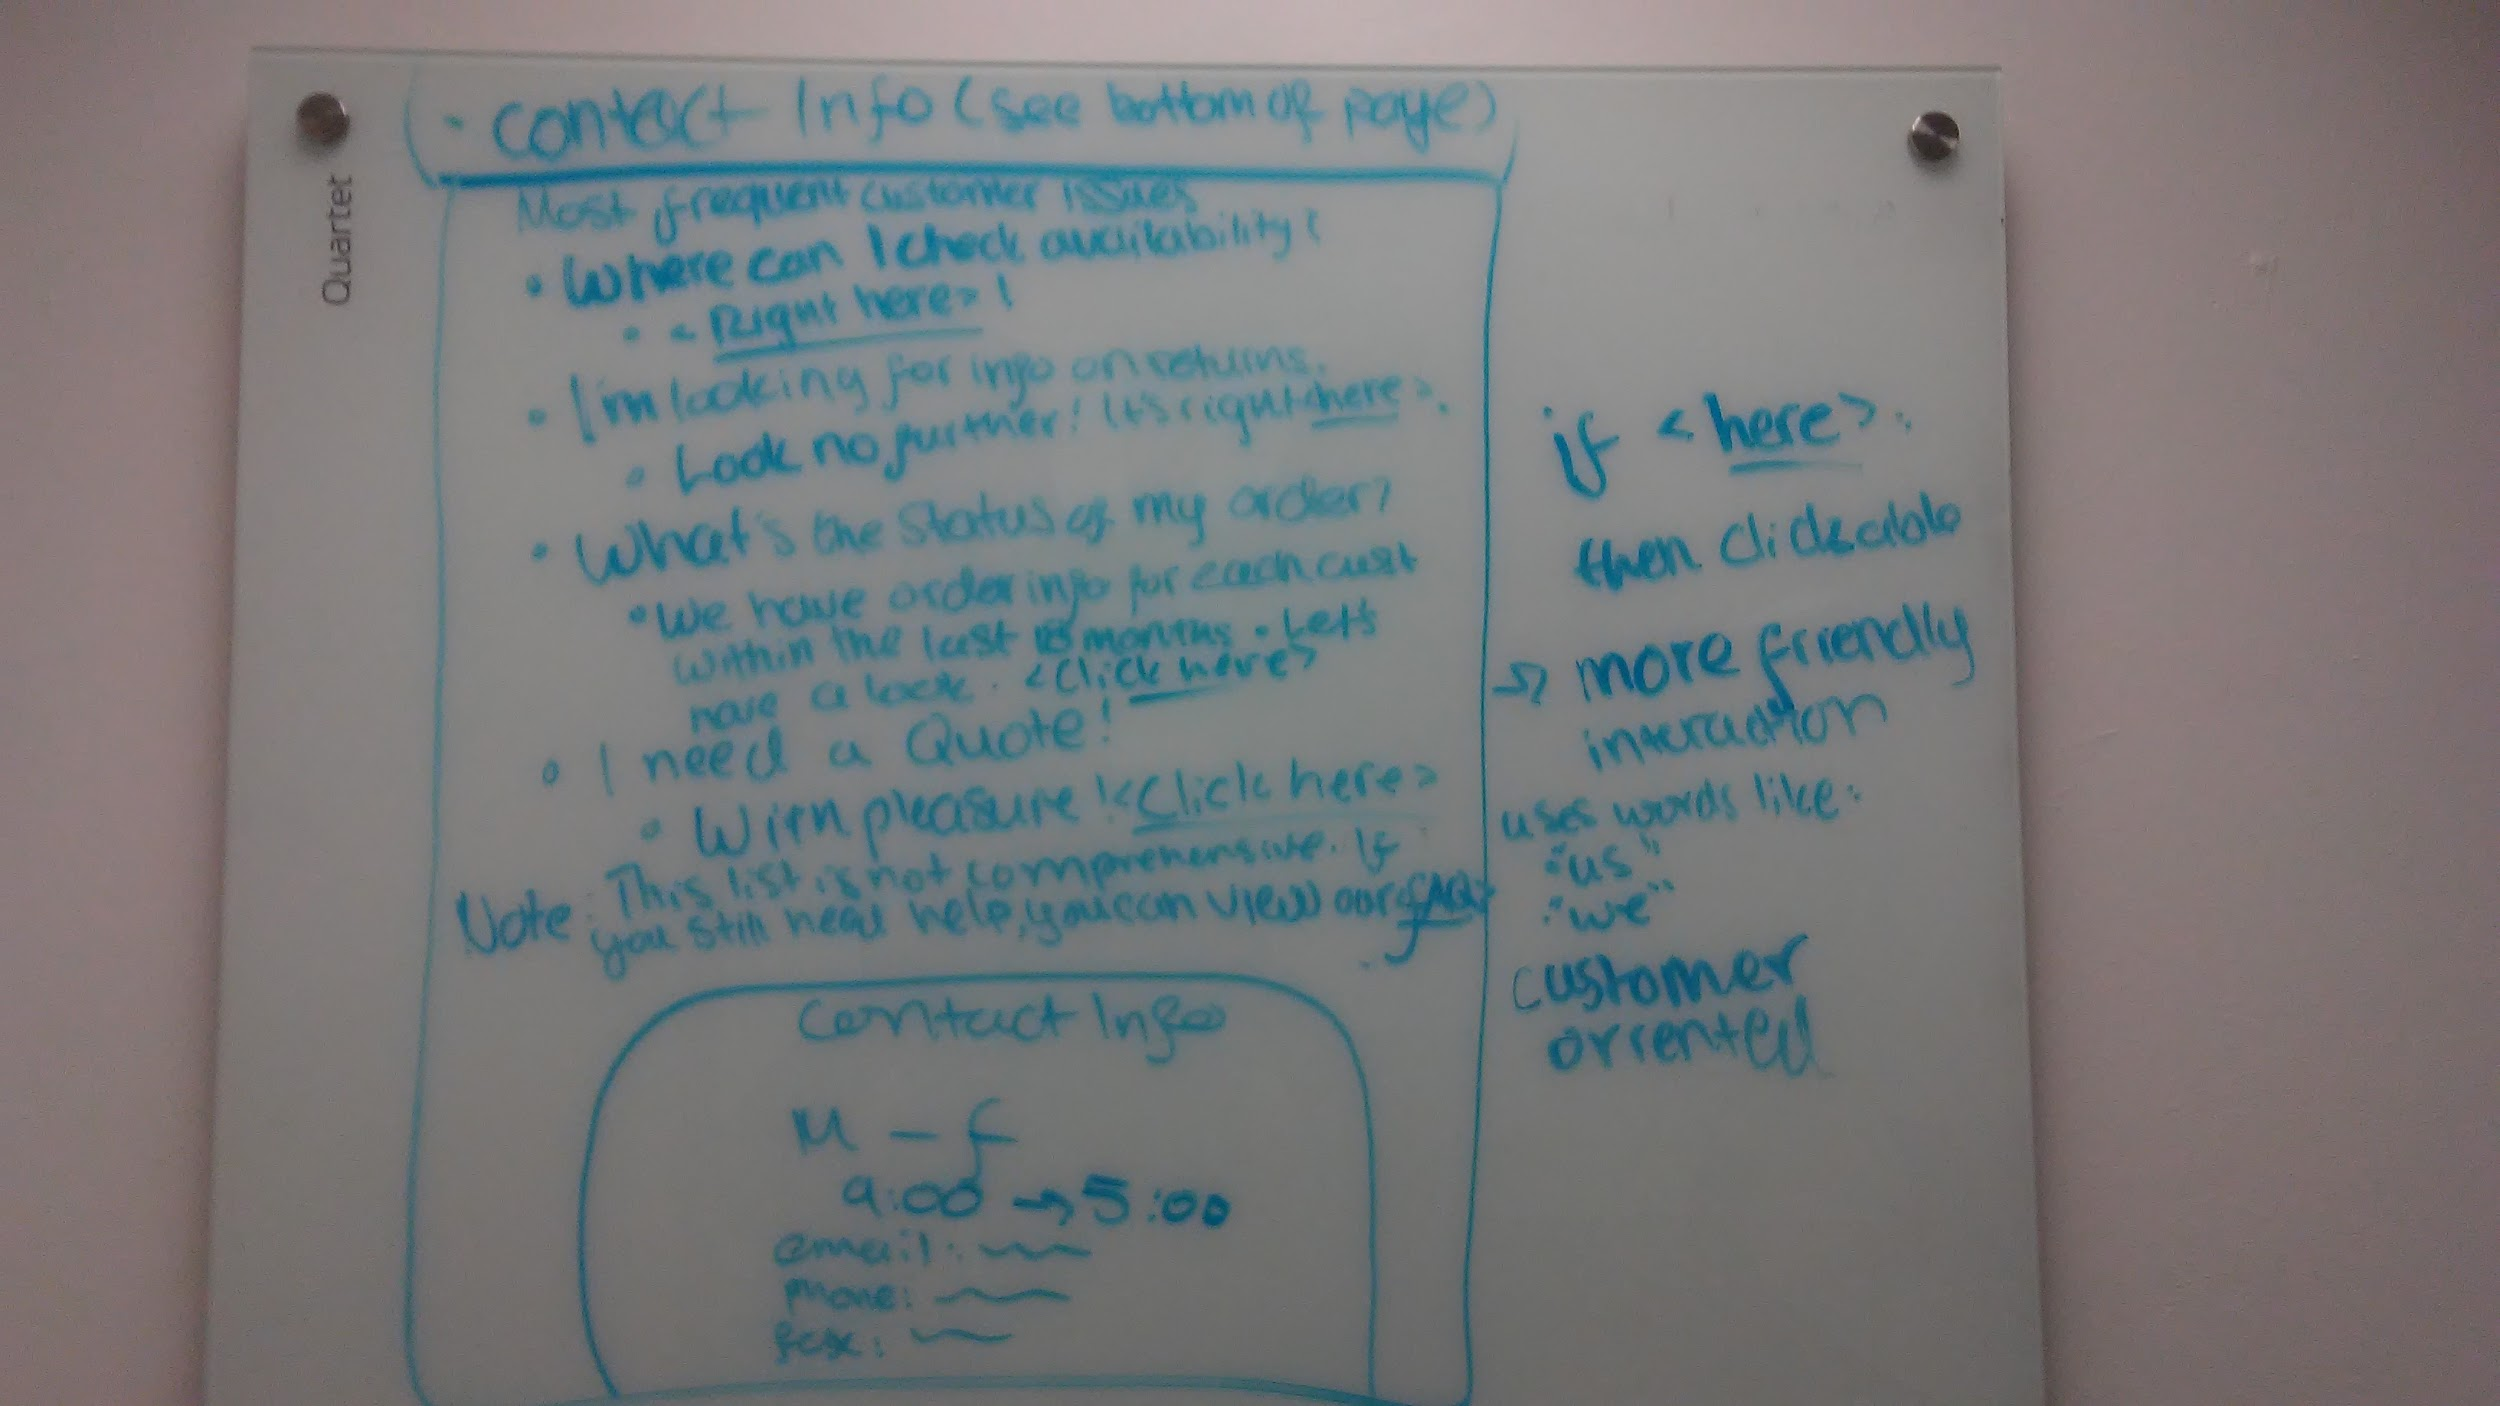 Quartet
• Contact Info (see bottom of page)
Most frequent customer issues
• Where can I check availability?
• <Right here>!
• I'm looking for info on returns.
• Look no further! It's right <here>.
• What's the status of my order?
• We have order info for each cust
within the last 18 months. Let's
have a look. <Click here>
• I need a Quote!
• With pleasure! <Click here>
Note: This list is not comprehensive. If
you still need help, you can view our <FAQ>
.
Contact Info
M - F
9:00 → 5:00
email:
phone:
fax:
if <here>:
then clickable
→ more friendly
interaction
uses words like:
"us"
"we"
customer
orriented